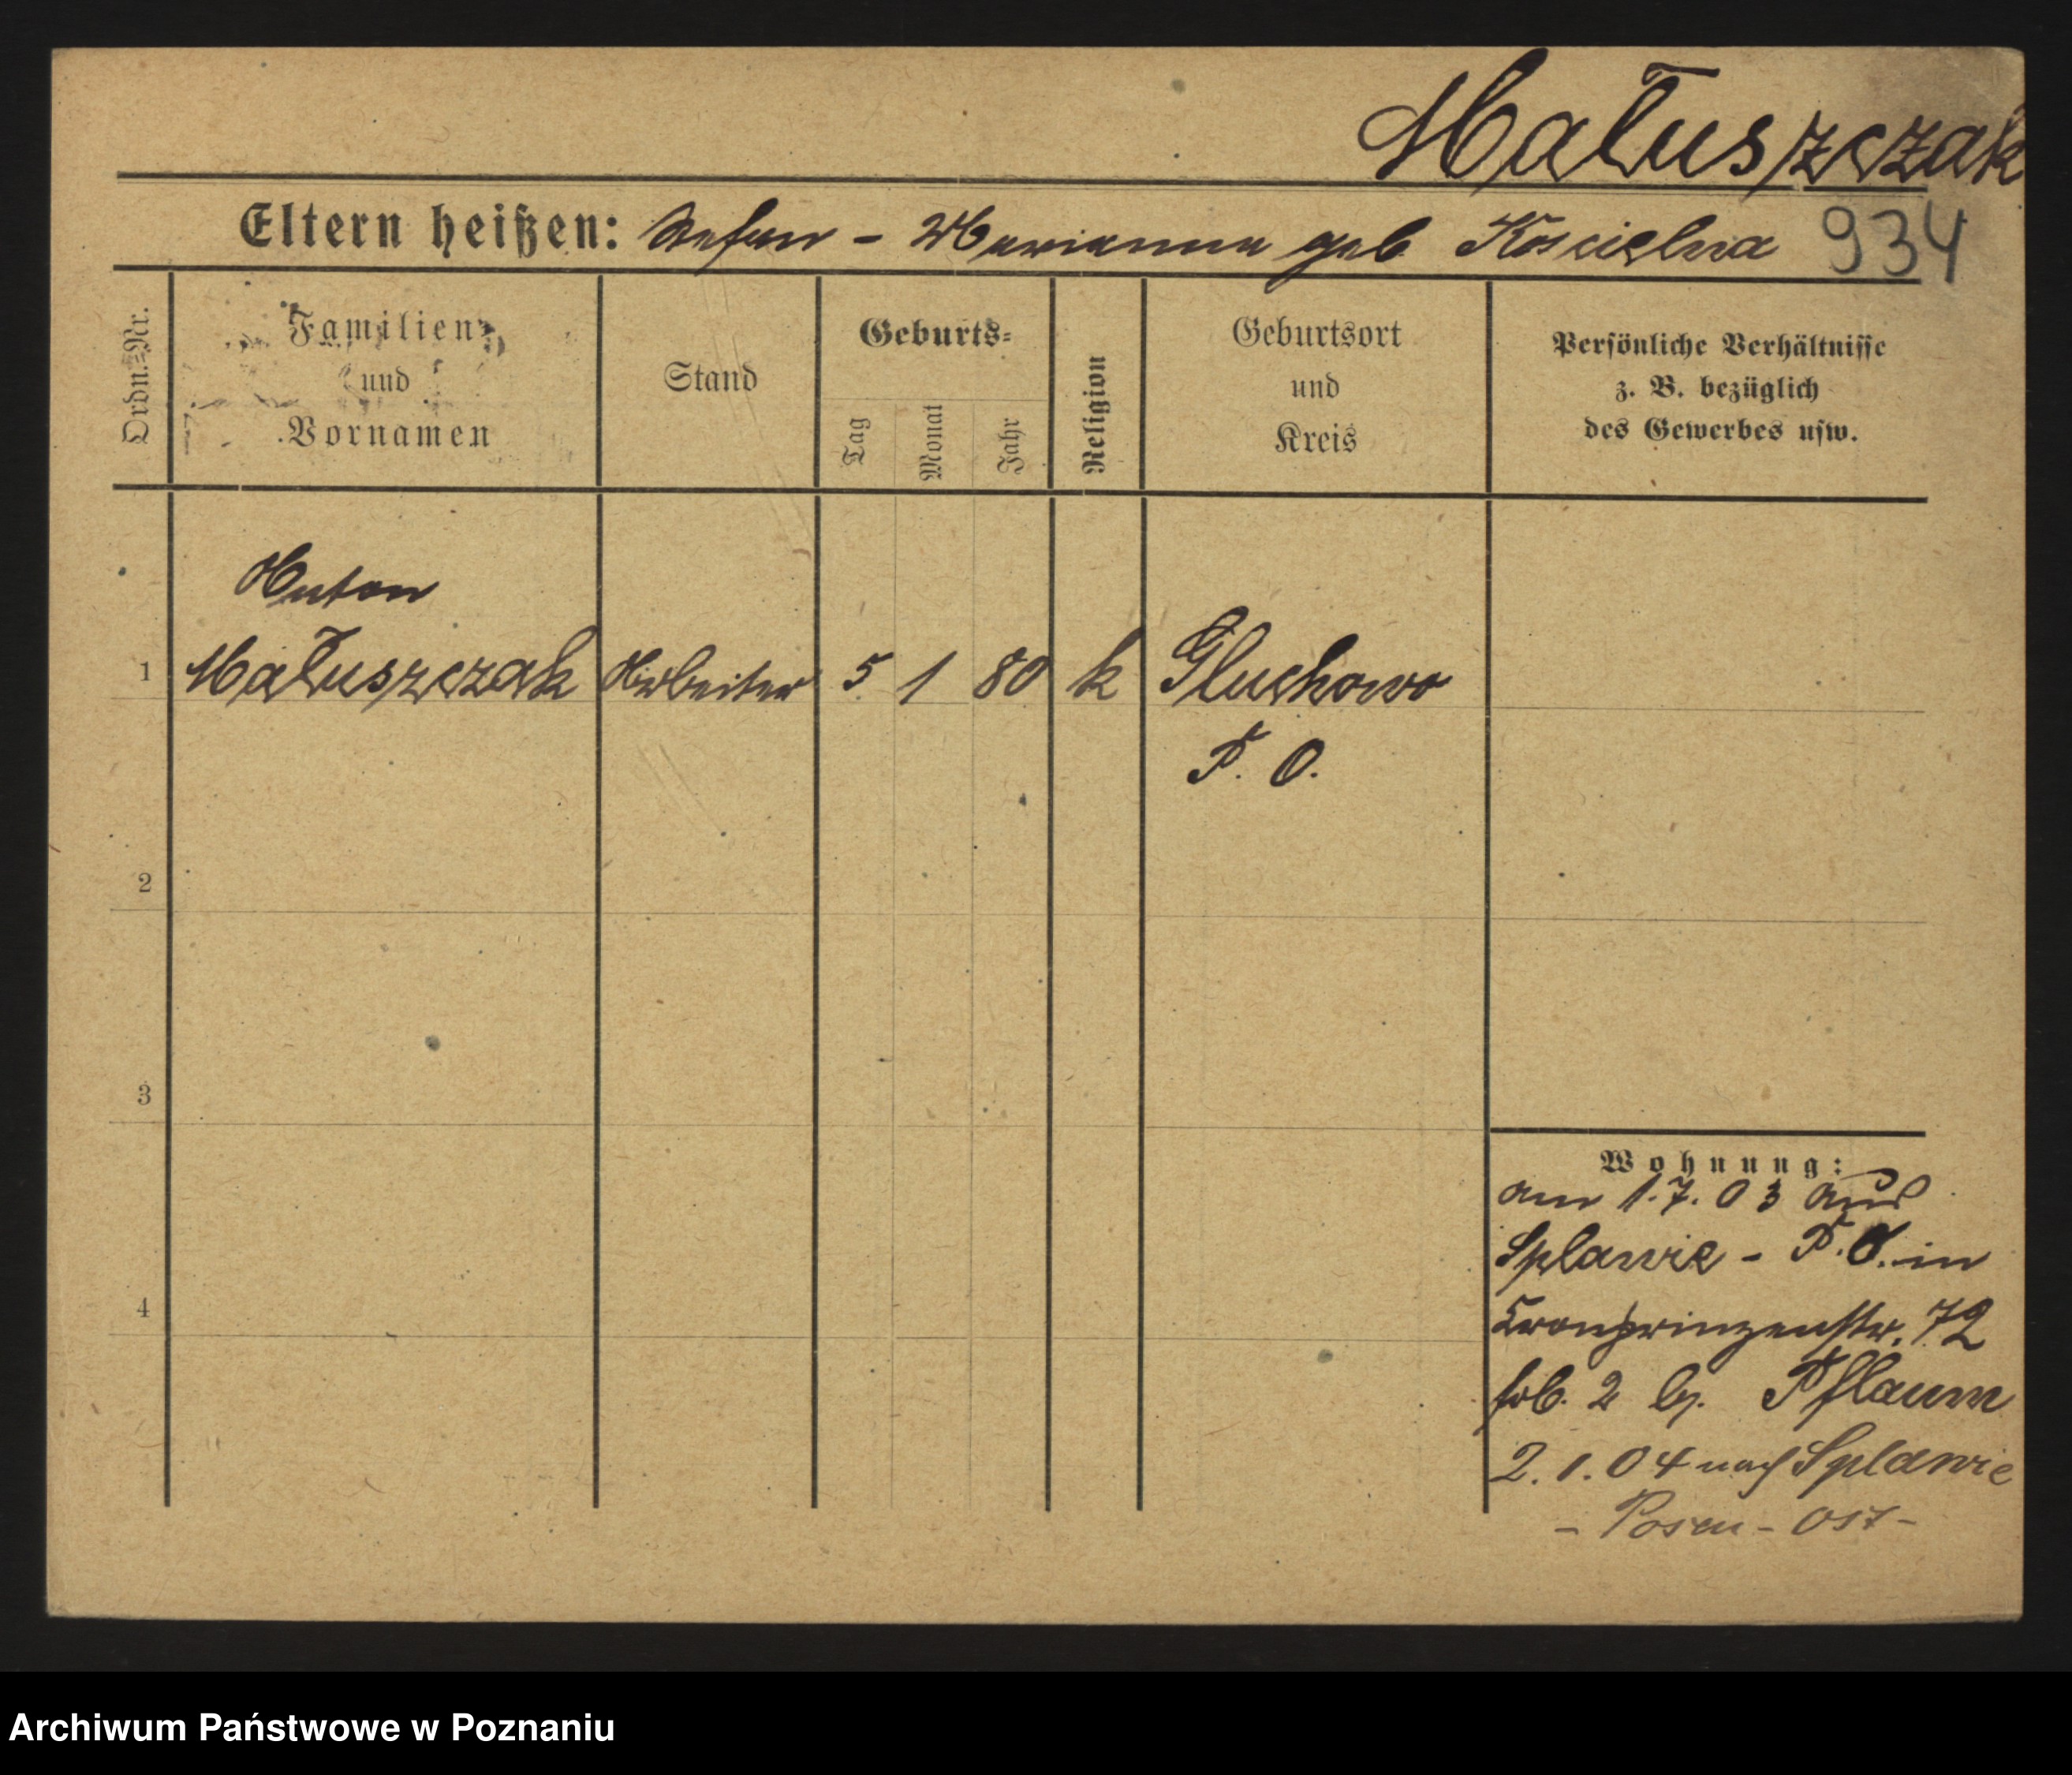 Matuszczak
Eltern heißen: Stefan – Marianna geb Koscielna 934
Ordn.=Nr.
Familien=
und
Vornamen
Stand
Geburts=
Tag
Monat
Jahr
Religion
Geburtsort
und
Kreis
Persönliche Verhältnisse
z. B. bezüglich
des Gewerbes usw.
Anton
1 Matuszczak Arbeiter 5 1 80 k Gluchowo
P. O.
2
3
4
Wohnung:
am 1.7.03 aus
Splawie – P. O. in
Kronprinzenstr. 72
2 Pflaum
2.1.04 nach Splawie
– Posen – Ost –
Archiwum Państwowe w Poznaniu